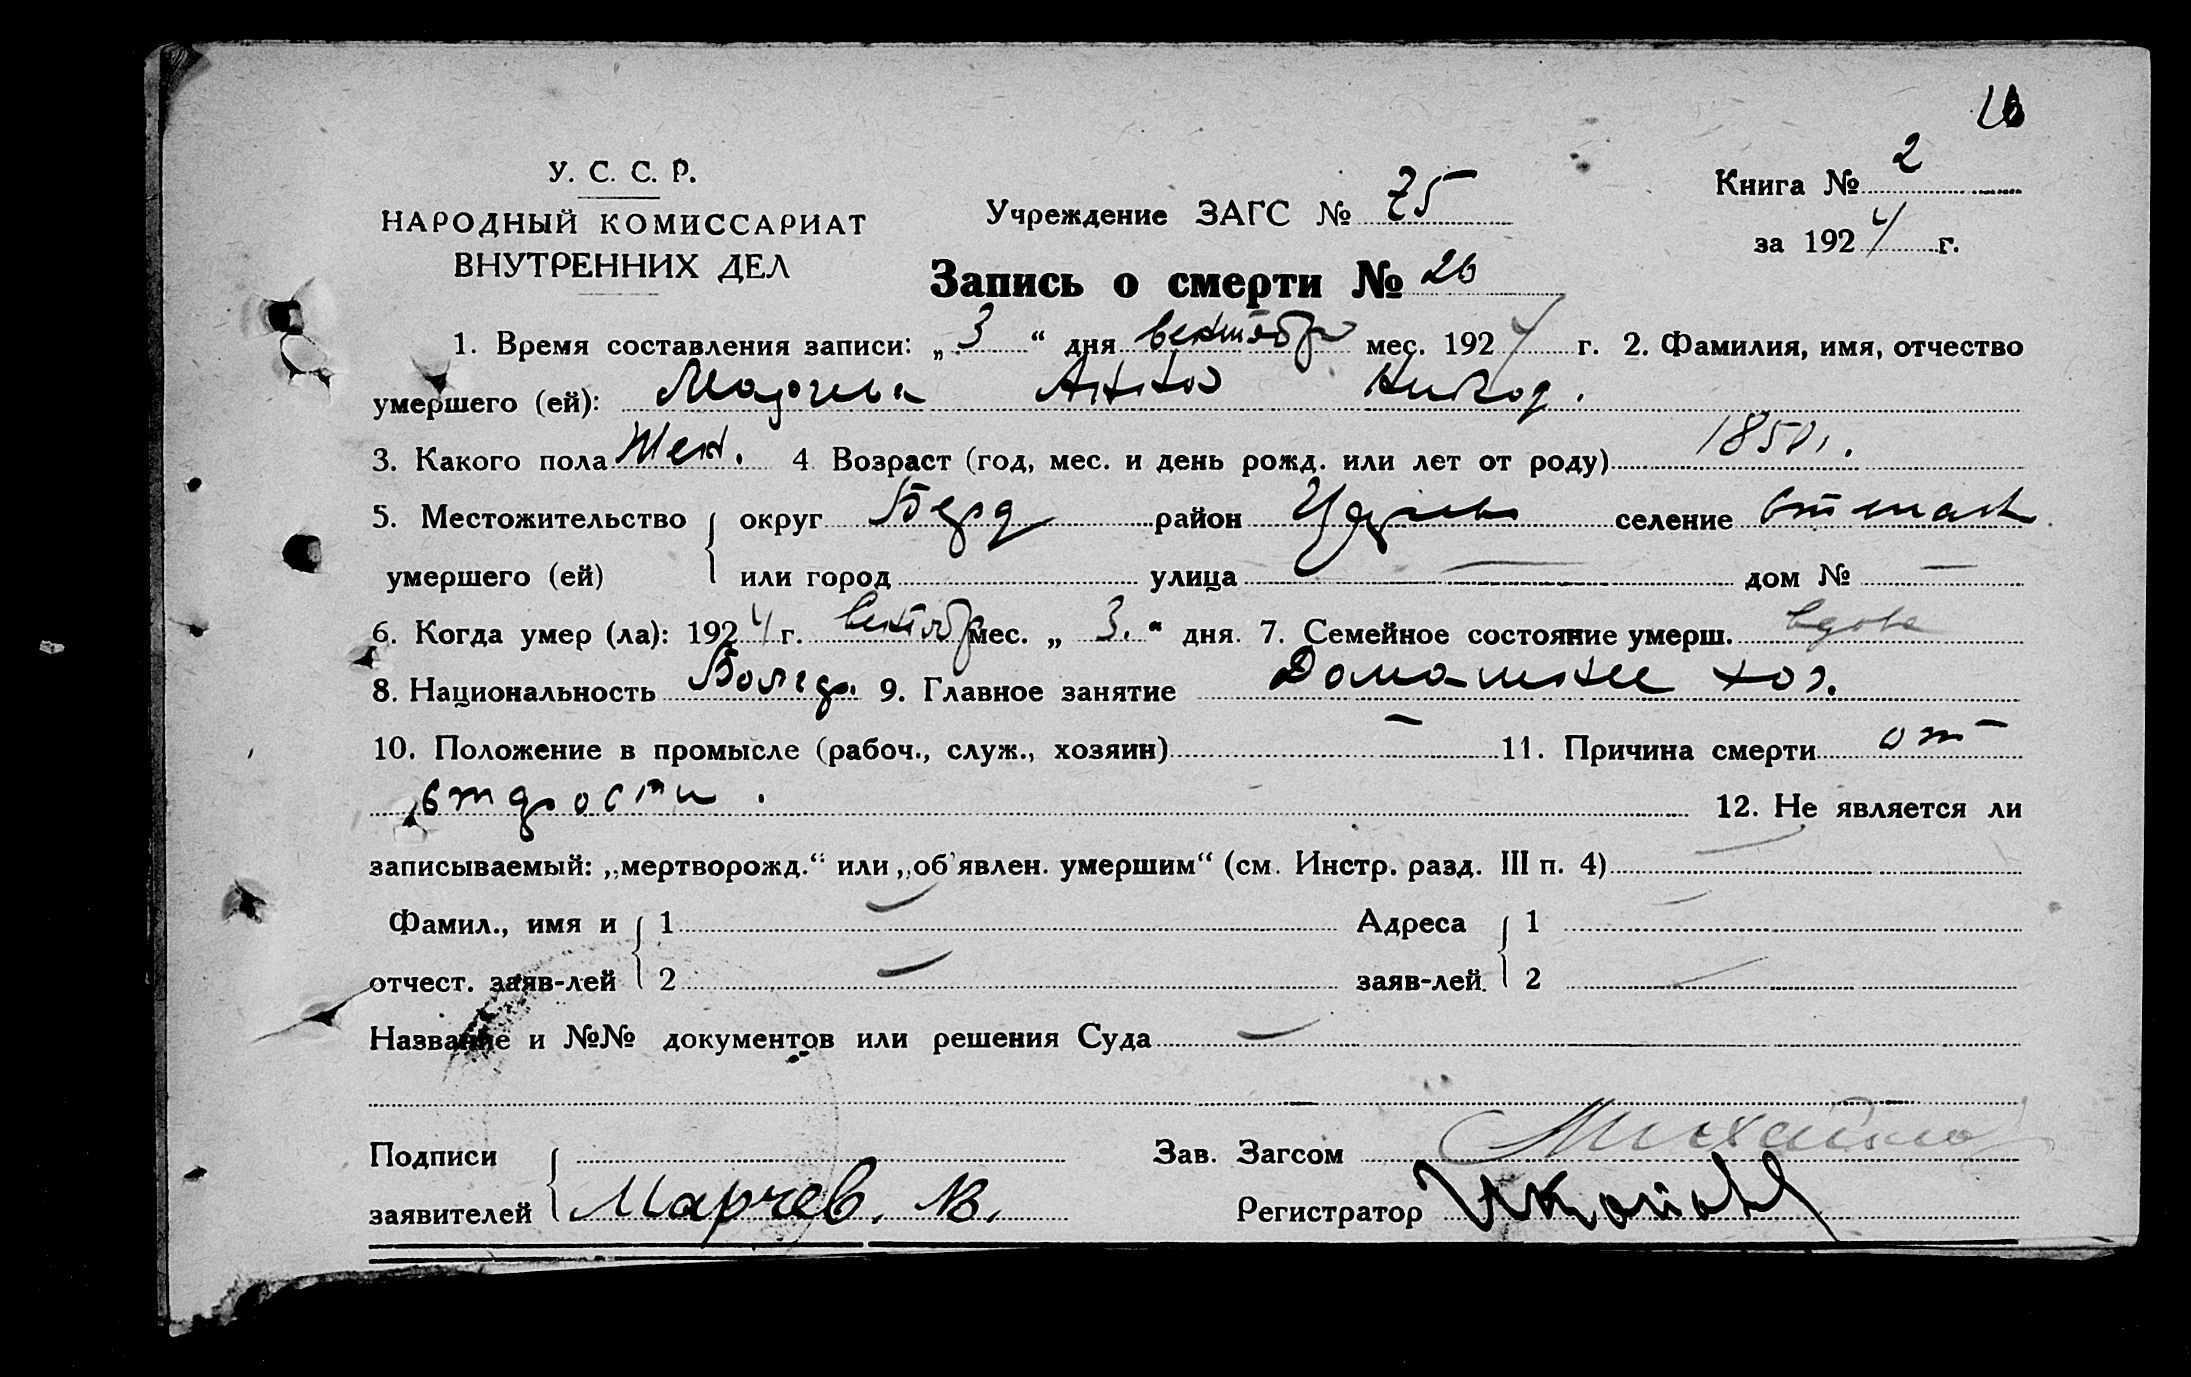 26
У. С. С. Р.
НАРОДНЫЙ КОМИССАРИАТ
ВНУТРЕННИХ ДЕЛ
Учреждение ЗАГС № 75
Книга № 2
за 1924 г.
Запись о смерти № 26
1. Время составления записи: „ 3 “ дня мес. 1924 г. 2. Фамилия, имя, отчество
умершего (ей): Марчева Анна Никод.
3. Какого пола Жен. 4 Возраст (год, мес. и день рожд. или лет от роду) 1850 г.
5. Местожительство округ Берд район селение
умершего (ей) или город улица — дом № —
6. Когда умер (ла): 1924 г. мес. „ 3. “ дня. 7. Семейное состояние умерш. вдова
8. Национальность Болгар. 9. Главное занятие Домашнее хоз.
10. Положение в промысле (рабоч., служ., хозяин) — 11. Причина смерти от
старости. 12. Не является ли
записываемый: „мертворожд.“ или „об'явлен. умершим“ (см. Инстр. разд. III п. 4) —
Фамил., имя и 1 — Адреса 1 —
отчест. заяв-лей 2 — заяв-лей. 2 —
Название и №№ документов или решения Суда —
Подписи Зав. Загсом
заявителей Марчев. В. Регистратор